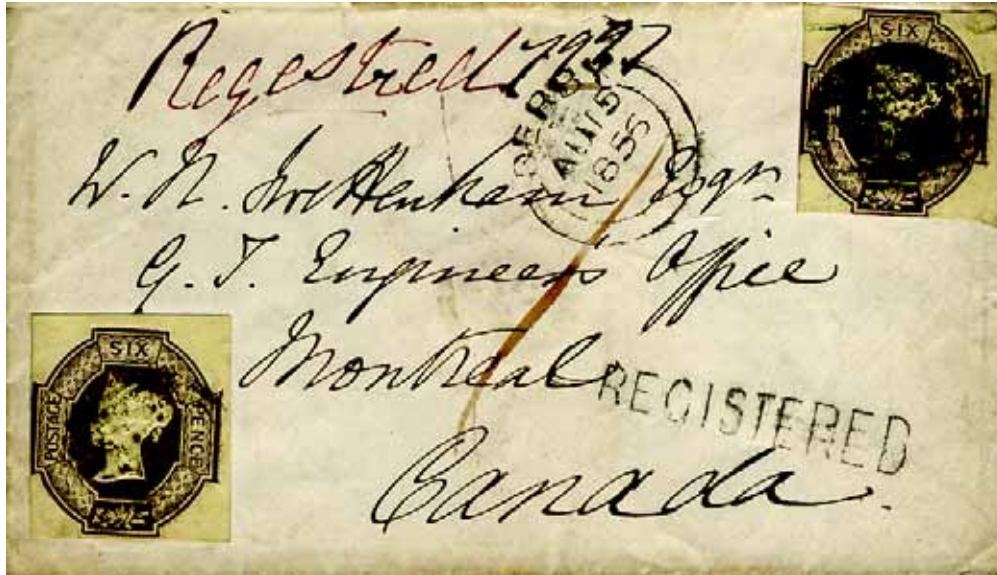 Regestred 1937
SIX
DERBY
AU 19
1856
W. N. Esqr
G. T. Engineers Office
Montreal
REGISTERED
Canada.
SIX
POSTAGE
PENCE